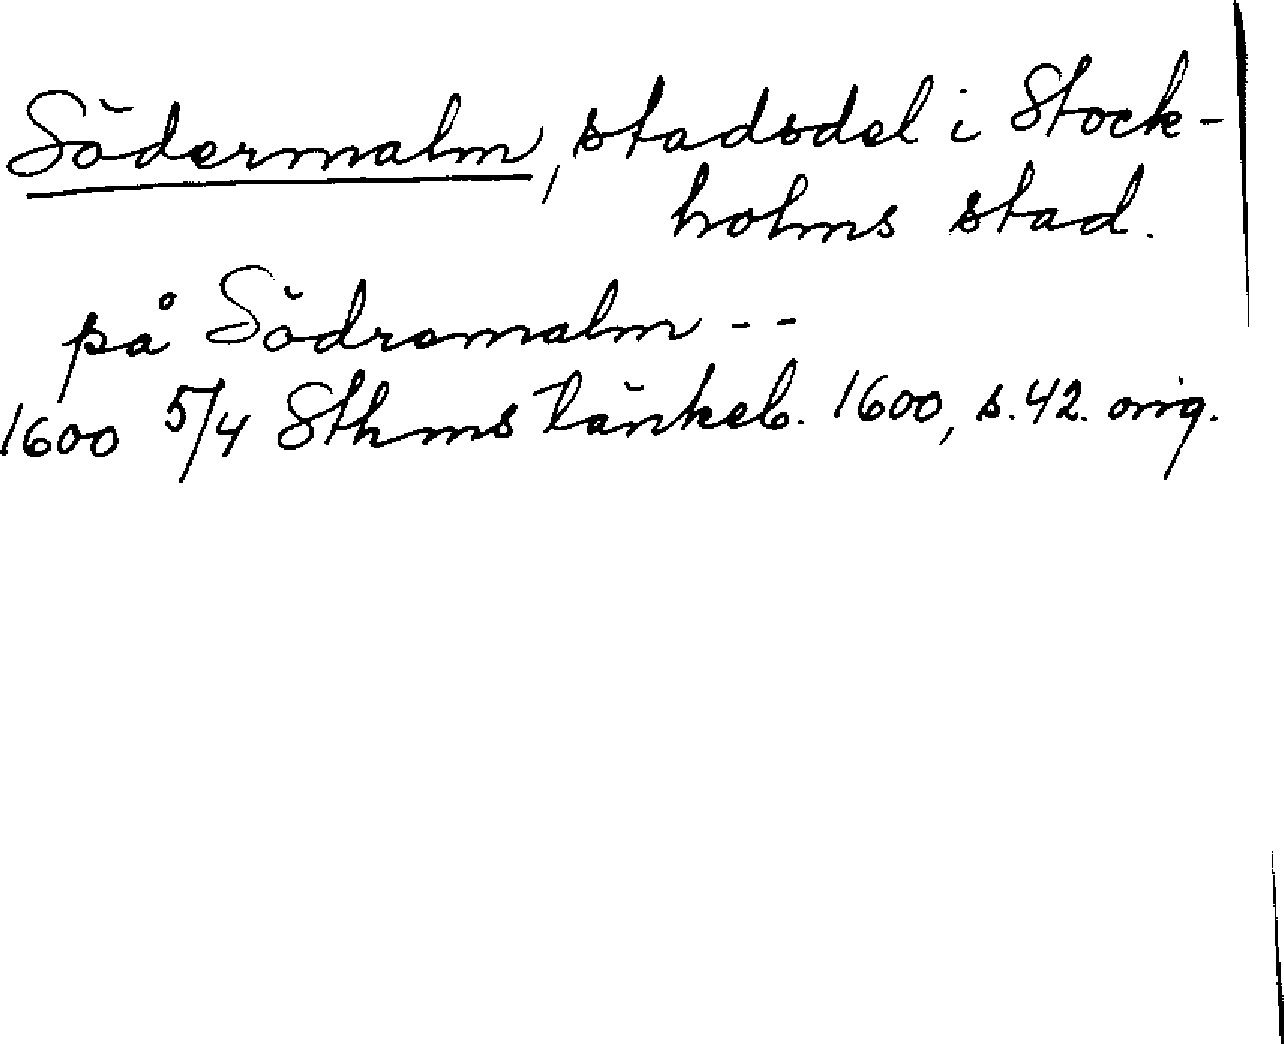 Södermalm, stadsdel i Stock-
holms stad.
på Södremalm - -
1600 5/4 Sthms tänkeb. 1600, s. 42. orig.